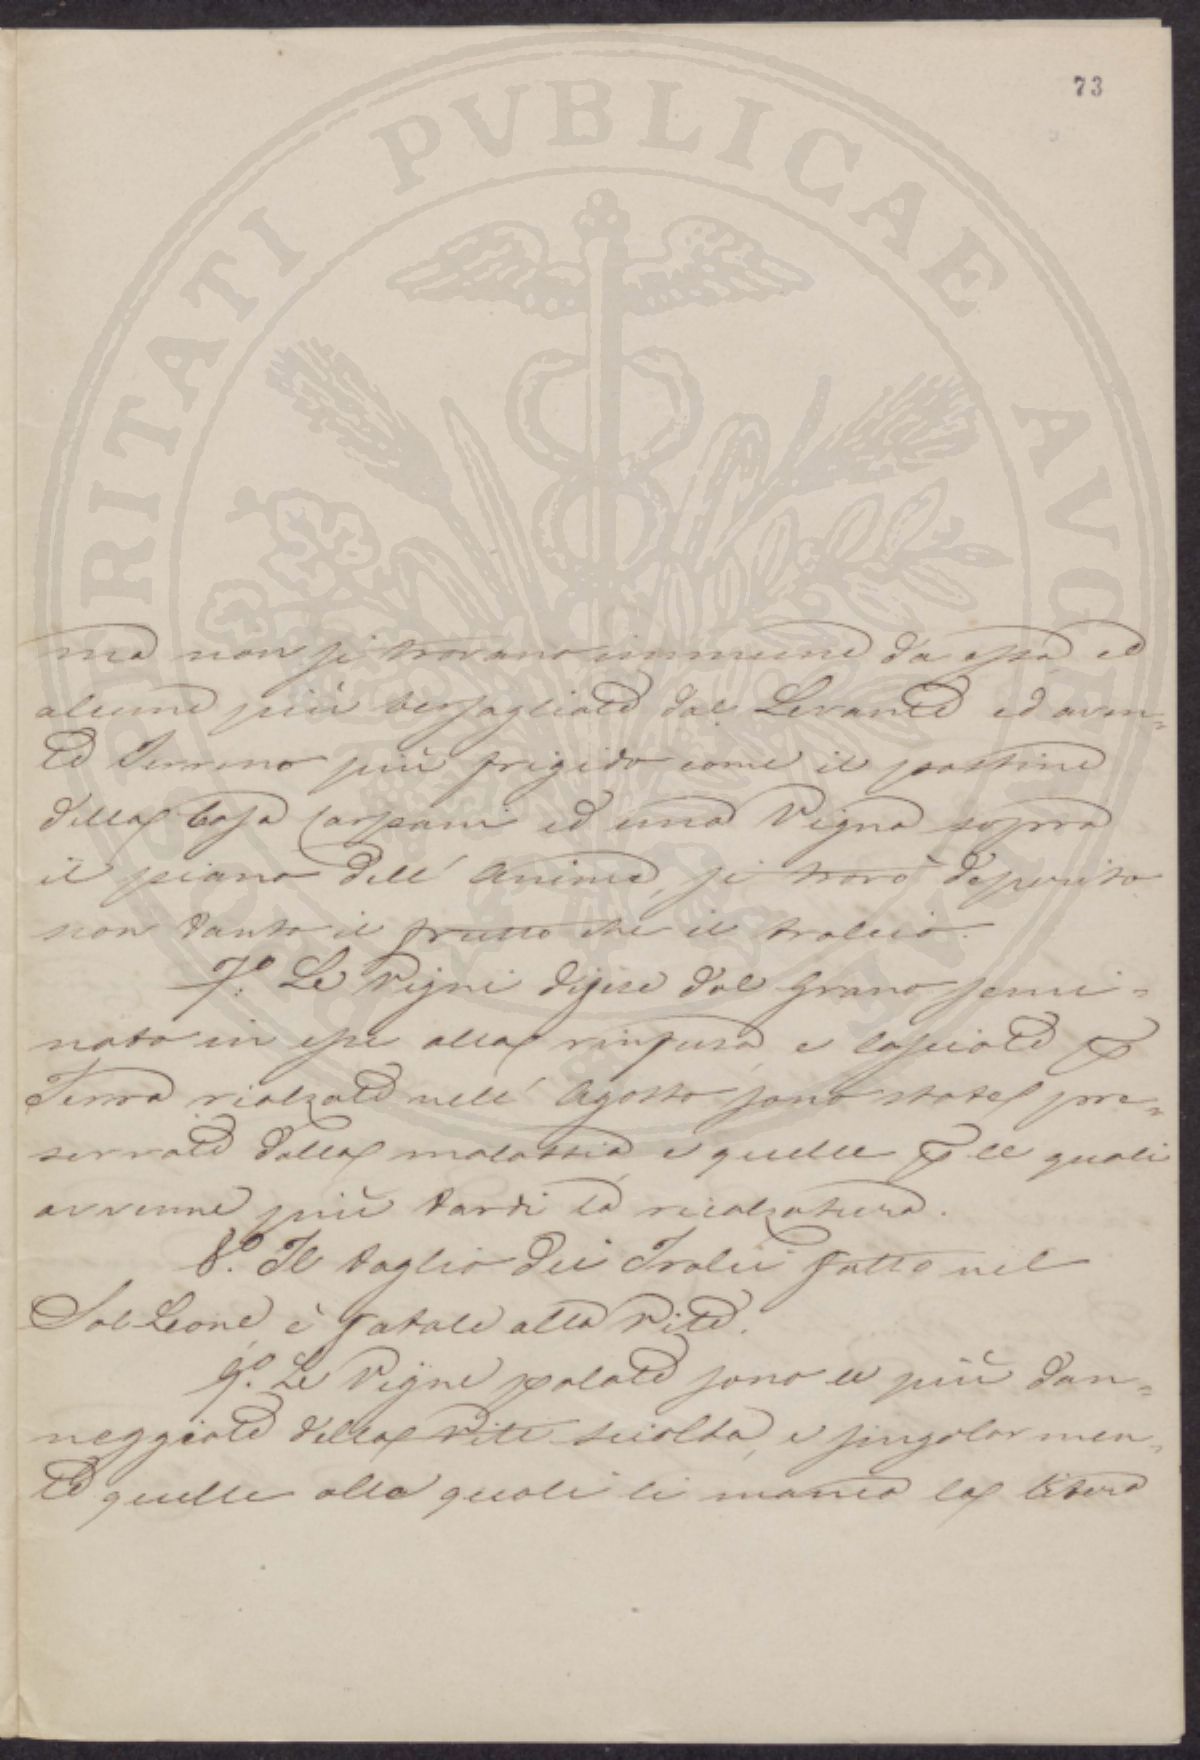 73
PROSPERITATI PVBLICAE AVGENDAE
ma non si trovano immune da essa, ed
alcune più bersagliate dal Levante ed aven=
te Terreno più frigido come il pastine
della Casa Carpani ed una Vigna sopra
il piano dell' Anime, si trovò deperito
non tanto il frutto che il tralcio.
7.º Le Vigni difese dal Grano semi=
nato in esse alla rinfusa, e lasciate p
Terra rialzate nell' Agosto sono state pre=
servate dalla malattia, e quelle p le quali
avvenne più tardi la rialzatura.
8.º Il taglio dei Tralci fatto nel
Sol Leone, è fatale alla Vite.
9.º Le Vigne palate sono le più dan=
neggiate della Vite sciolta, e singolarmen=
te quelle alla quali li manca la libera